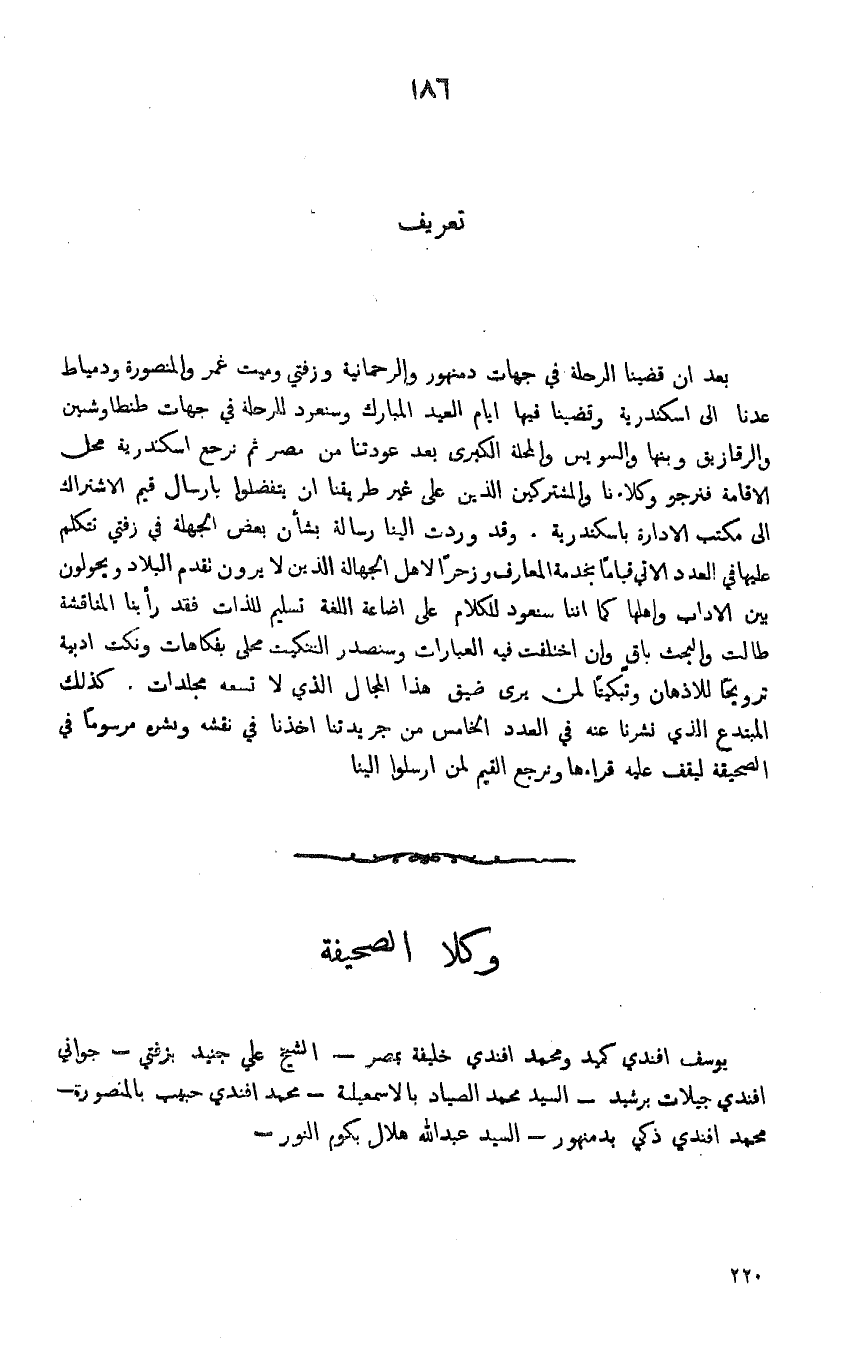 ١٨٦
تعريف
بعد ان قضينا الرحلة في جهات دمنهور والرحمانية وزفتي وميت غمر والمنصورة ودمياط
عدنا الى اسكندرية وقضينا فيها ايام العيد المبارك وسنعود للرحلة في جهات طنطاوشبين
والرقازيق وبنها والسويس والمحلة الكبرى بعد عودتنا من مصر ثم نرجع اسكندرية محل
الاقامة فنرجو وكلاءنا والمشتركين الذين على غير طريقنا ان يتفضلوا بارسال قيم الاشتراك
الى مكتب الادارة باسكندرية . وقد وردت الينا رسالة بشأن بعض الجهلة في زفتي نتكلم
عليهافي العدد الاتي قياماً بخدمة المعارف وزجراً لاهل الجهالة الذين لا يرون تقدم البلاد ويحولون
بين الاداب واهلها كما اننا سنعود للكلام على اضاعة اللغة تسليم للذات فقد رأينا المناقشة
طالت والبحث باقي وإن اختلفت فيه العبارات وسنصدر التنكيت محلى بفكاهات ونكت ادبية
ترويحاً للاذهان وتبكيتاً لمن يرى ضيق هذا المجال الذي لا تسعه مجلدات . كذلك
المبتدع الذي نشرنا عنه في العدد الخامس من جريدتنا اخذنا في نقشه ونشره مرسوماً في
الصحيفة ليقف عليه قراءها ونرجع القيم لمن ارسلوا الينا
وكلا الصحيفة
يوسف افندي كميد ومحمد افندي خليفة بمصر — الشيخ علي جنيد بزفتي — جواني
افندي جيلات برشيد — السيد محمد الصياد بالاسمعيلية — محمد افندي حبيب بالمنصورة—
محمد افندي ذكي بدمنهور — السيد عبدالله هلال بكوم النور —
٢٢٠